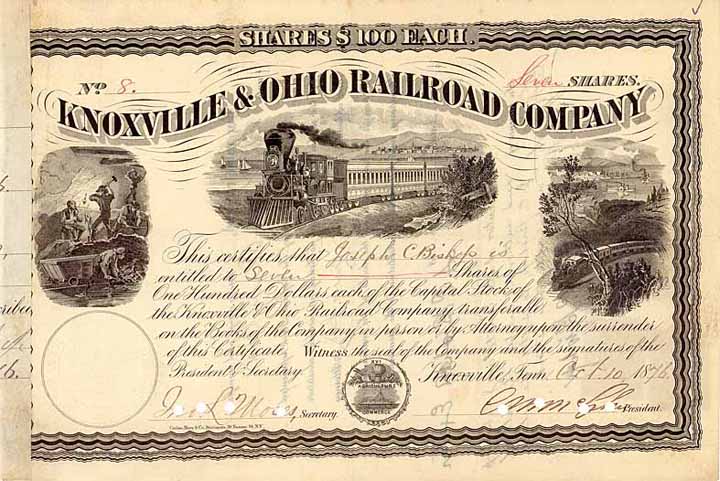 SHARES $100 EACH.
No 8. Seven SHARES.
KNOXVILLE & OHIO RAILROAD COMPANY
This certifies that Joseph C. Bishop is
entitled to Seven Shares of
One Hundred Dollars each of the Capital Stock of
the Knoxville & Ohio Railroad Company transferable
on the Books of the Company in person or by Attorney upon the surrender
of this Certificate. Witness the seal of the Company and the signatures of the
President & Secretary.
Knoxville, Tenn. Oct. 10 1876
AGRICULTURE
COMMERCE
Secretary.
President.